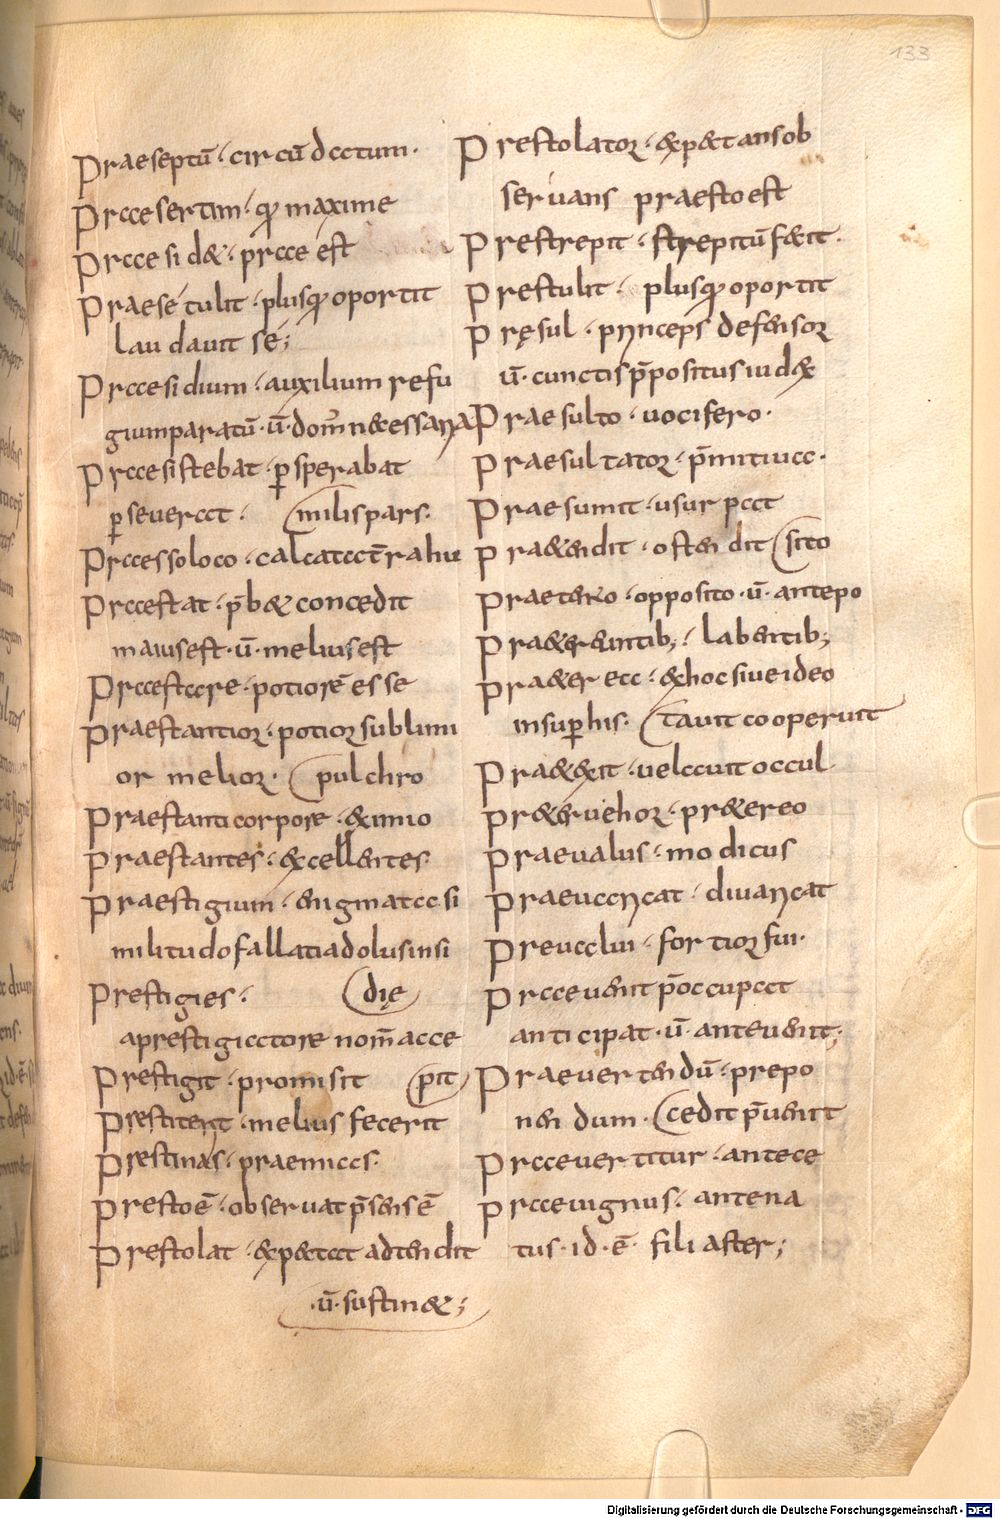 133
Praeseptū · circū datum ·
Praesertim · qꝫ maxime
Praesid& · prae est
Praesetulit · plusqꝫ oportit
laudauit sé;
Praesidium · auxilium refu
gium paratū · ū · dom̄ n&essaria
Praesistebat · ꝑsperabat
ꝑseuerat · (milis pars ·
Praesso loco · calcata t̄ra hu
Praestat · p̄b& concedit
maius est · ū · melius est
Praestare · potiorē esse
Praestantior · potior sublimi
or melior · (pulchro
Praestanti corpore · &imio
Praestantes · &cellentes
Praestigium · enigmata si
militudo fallatia dolus insi
Prestigies · (dię)
a prestigiatore nom̄ acce
Prestigit · promisit (pit)
Prestiterit · melius fecerit
Prestinas · praemias ·
Presto ē · obseruat p̄sens ē
Prestolat · &p&tat adtendit
· ū · sustin&;
Prestolator · &p&tans ob
seruans praesto est
Prestrepit · strepitū fecit ·
Prestulit · plusqꝫ oportit
Pręsul · princeps defensor
ū · cunctis p̄positus iud&
Praesulto · uocifero ·
Praesultator · p̄mitiua ·
Praesumit · usurpat
Pra&endit · ostendit (sito
Praetento · opposito · ū · antepo
Pra&erentib; · labentib;
Pra&er ea · &hoc siue ideo
insuꝑ his · (tauit cooperuit
Pra&exit · uelauit occul
Pr&eruehor · pr&ereo
Praeualus · modicus
Praeuaricat · diuaricat
Preualui · fortior fui ·
Praeuenit p̄occupat
anticipat · ū · anteuenit;
Praeuertendū · prepo
nendum · (cedit p̄uenit
Praeuertitur · antece
Praeuignus · antena
tus · id · ē · filiaster;
Digitalisierung gefördert durch die Deutsche Forschungsgemeinschaft - DFG